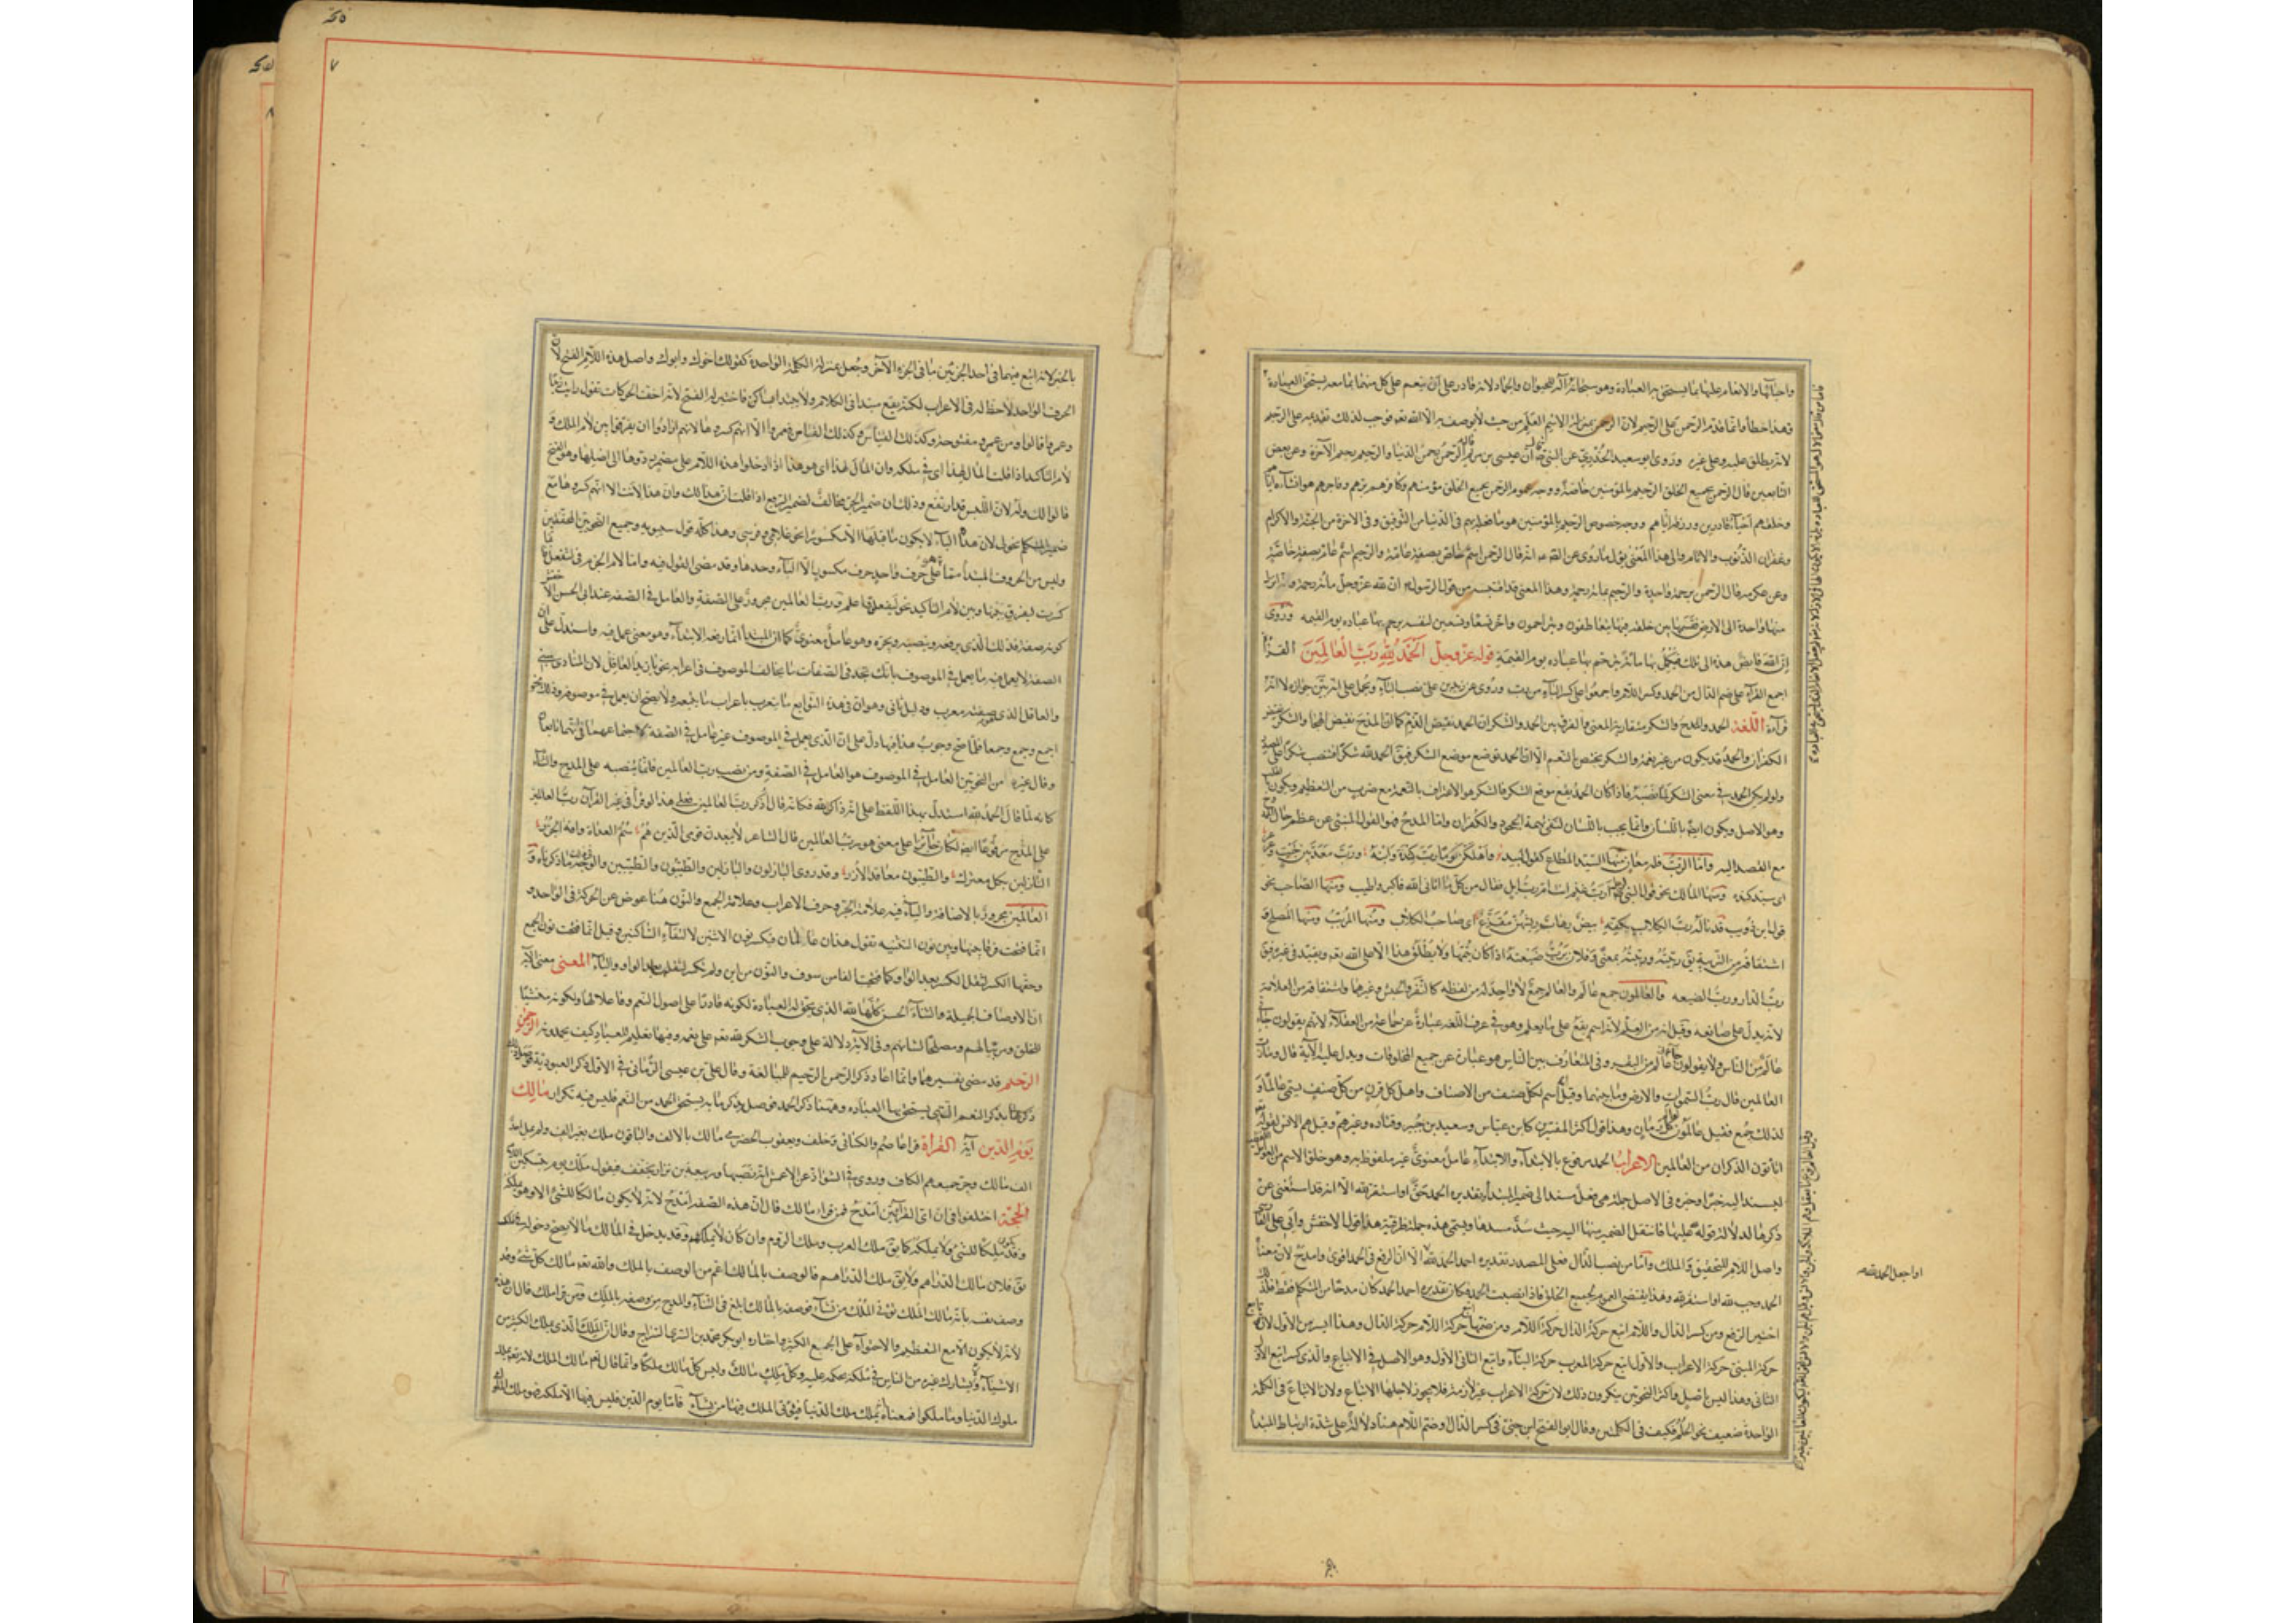 واحيائها والانعام عليها بما يستحق به العبادة وهو سبحانه اله للحيوان والجماد لانه قادر على ان ينعم على كل منهما بما معه يستحق العبادة
وهذا خطأ وانما قدم الرحمن على الرحيم لان الرحمن بمنزلة الاسم العلم من حيث لا يوصف به الا الله تعه فوجب لذلك تقديمه على الرحيم
لانه يطلق عليه وعلى غيره وروى ابو سعيد الخدري عن النبي ان عيسى بن مريم قال الرحمن رحمن الدنيا والرحيم رحيم الآخرة وعن بعض
التابعين قال الرحمن بجميع الخلق الرحيم بالمؤمنين خاصة ووجه عموم الرحمن بجميع الخلق مؤمنهم وكافرهم برهم وفاجرهم هو انشاءه اياهم
وخلقهم احياء قادرين ورزقه اياهم ووجه خصوص الرحيم بالمؤمنين هو ما فعله بهم في الدنيا من التوفيق وفي الاخرة من الجنة والاكرام
وغفران الذنوب والاثام والى هذا المعنى يؤل ما روى عن الصه انه قال الرحمن اسم خاص بصفة عامة والرحيم اسم عام بصفة خاصة
وعن عكرمه قال الرحمن برحمة واحدة والرحيم بمائة رحمة وهذا المعنى قد اقتبسه من قول الرسول ان لله عز وجل مائة رحمة وانه انزل
منها واحدة الى الارض فقسمها بين خلقه فبها يتعاطفون ويتراحمون واخر تسعا وتسعين لنفسه يرحم بها عباده يوم القيمه وروى
ان الله قابض هذه الى تلك فيكملها مائة يرحم بها عباده يوم القيمة قوله عز وجل الحمد لله رب العالمين القراءة
اجمع القراء على ضم الدال من الحمد وكسر اللام واجمعوا على كسر الباء من رب وروى عن زيد بن علي نصب الباء ويحمل على انه بين جوازه لا انه
قراءة اللغة الحمد والمدح والشكر متقاربة المعنى والفرق بين الحمد والشكر ان الحمد نقيض الذم كما ان المدح نقيض الهجا والشكر نقيض
الكفران والحمد قد يكون من غير نعمة والشكر يختص بالنعم الا ان الحمد يوضع موضع الشكر فيق الحمد لله شكرا فتنصب شكرا على المصدر
ولو لم يكن الحمد في معنى الشكر لما نصبه فاذا كان الحمد يقع موقع الشكر فالشكر هو الاعتراف بالنعمة مع ضرب من التعظيم ويكون بالقلب
وهو الاصل ويكون ايضا باللسان وانما يجب باللسان لنفي تهمة الجحود والكفران واما المدح فهو القول المنبئ عن عظم حال الممدوح
مع القصد اليه واما الرب فله معان منها السيد المطاع كقول لبيد واهلكن يوما رب كندة وابنه ورب معد بين خبت وعرعر
اى سيد كنده ومنها المالك نحو قول النبي لرجل ارب غنم انت ام رب ابل فقال من كل ما اتاني الله فاكثر واطيب ومنها الصاحب نحو
قول ابي ذؤيب قد ناله رب الكلاب بكفه بيض رهاب ريشهن مقزع اى صاحب الكلاب ومنها المربب ومنها المصلح و
اشتقاقه من التربية يق ربيته ورببته بمعنى وفلان يرب ضيعته اذا كان يتمها ولا يطلق هذا الا على الله تعه ويقيد في غيره فيق
رب الدار ورب الضيعه والعالمون جمع عالم والعالم جمع لا واحد له من لفظه كالنفر والجيش وغيرهما واشتقاقه من العلامة
لانه يدل على صانعه وقيل انه من العلم لانه اسم يقع على ما يعلم وهو في عرف اللغه عبارة عن جماعة من العقلاء لانهم يقولون جاءني
عالم من الناس ولا يقولون جاءني عالم من البقر وفي المتعارف بين الناس هو عبارة عن جميع المخلوقات ويدل عليه الآية قال وما رب
العالمين قال رب السموات والارض وما بينهما وقيل انه اسم لكل صنف من الاصناف واهل كل قرن من كل صنف يسمى عالما و
لذلك جمع فقيل عالمون لعالم كل زمان وهذا قول اكثر المفسرين كابن عباس وسعيد بن جبير وقتاده وغيرهم وقيل هم الانس لقوله
اتأتون الذكران من العالمين الاعراب الحمد مرفوع بالابتداء والابتداء عامل معنوي غير ملفوظ به وهو خلو الاسم من العوامل اللفظية
ليسند اليه خبر وخبره في الاصل جملة هي فعل مسند الى ضمير المبتدأ وتقديره الحمد حق او استقر لله الا انه قد استغنى عن
ذكرها لدلالة قوله لله عليها فانتقل الضمير منها اليه حيث سد مسدها ويسمى هذه جملة ظرفية هذا قول الاخفش وابي علي الفارسي
واصل اللام للتحقيق والملك واما من نصب الدال فعلى المصدر تقديره احمد الحمد لله الا ان الرفع في الحمد اقوى وامدح لان معناه
الحمد وجب لله او استقر لله وهذا يقتضى العموم لجميع الخلق فاذا نصبت الحمد فكان تقديره احمد الحمد كان مدحا من المتكلم فقط فلذلك
اختير الرفع ومن كسر الدال واللام اتبع حركة الدال حركة اللام ومن ضمهما اتبع حركة اللام حركة الدال وهذا ايسر من الاول لان
حركة المبنى حركة الاعراب والاول اتبع حركة المعرب حركة البناء واتبع الثاني الاول وهو الاصل في الاتباع والذى كسر اتبع الاول
الثاني وهذا ليس باصل واكثر النحويين ينكرون ذلك لان حركة الاعراب غير لازمة فلا يجوز لاجلها الاتباع ولان الاتباع في الكلمة
الواحدة ضعيف نحو الحلم فكيف في الكلمتين وقال ابو الفتح ابن جني في كسر الدال وضم اللام هنا دلالة على شدة ارتباط المبتدأ
او اجعل الحمد لله
٧
بالخبر لانه اتبع فيهما في احد الجزئين ما في الجزء الآخر وجعل بمنزلة الكلمة الواحدة كقولك اخوك وابوك واصل هذه اللام الفتح لان
الحرف الواحد لا حظ له في الاعراب لكنه يقع مبتدأ في الكلام ولا يبتدأ بساكن فاختير له الفتح لانه اخف الحركات تقول رأيت زيدا
وعمرا قالوا ومن عمرو مفتوحة وكذلك الفاء من فعمرو الا انهم كسروها لانهم ارادوا ان يفرقوا بين لام الملك و
لام التأكيد اذا قلت المال لهذا اى في ملكه وان المال لهذا اى هو هذا اذا ادخلوا هذه اللام على مضمر ردوها الى اصلها وهو الفتح
قالوا لك وله لان اللبس قد ارتفع وذلك ان ضمير الجر مخالف لضمير الرفع اذا قلت ان هذا لك وان هذا لانت الا انهم كسروها مع
ضمير المتكلم نحو لى لان هذه الياء لا يكون ما قبلها الا مكسورا نحو غلامى وفرسى وهذا كله قول سيبويه وجميع النحويين المحققين
وليس من الحروف المبتدأ مما هو على حرف واحد حرف مكسور الا الباء وحدها وقد مضى القول فيه واما لام الجزم في ليفعل فانما
كسرت ليفرق بينها وبين لام التأكيد نحو ليفعل فاعلم ورب العالمين مجرور على الصفة والعامل في الصفه عند ابى الحسن الاخفش
كونه صفة فذلك الذى يرفعه وينصبه ويجره وهو عامل معنوى كما ان المبتدأ انما رفعه الابتداء وهو معنى عمل فيه واستدل على ان
الصفة لا يعمل فيه ما يعمل في الموصوف بانك تجد في الصفات ما يخالف الموصوف في اعرابه نحو يا زيد العاقل لان المنادى مبنى
والعاقل الذى هو صفته معرب ودليل ثانى وهو ان في هذه التوابع ما يعرب باعراب ما يتبعه ولا يصح ان يعمل في موصوفه وذلك نحو
اجمع وجمع وجمعا فلما صح وجوب هذا فيها دل على ان الذى يعمل في الموصوف غير عامل في الصفة لاجتماعهما في انهما تابعان
وقال غيره من النحويين العامل في الموصوف هو العامل في الصفة ومن نصب رب العالمين فانما ينصبه على المدح والثناء
كانه لما قال الحمد لله استدل بهذا اللفظ على انه ذاكر لله فكانه قال اذكر رب العالمين فعلى هذا لو قرأ في غير القرآن رب العالمين
على المدح مرفوعا ايضا لكان جائزا على معنى هو رب العالمين قال الشاعر لا يبعدن قومى الذين هم سم العداة وافة الجزر
النازلين بكل معترك والطيبون معاقد الازر وقد روى النازلون والنازلين والطيبون والطيبين والوجه في ذلك ما ذكرناه و
العالمين مجرور بالاضافة والياء فيه علامة الجر وحرف الاعراب وعلامة الجمع والنون هنا عوض عن الحركة في الواحد و
انما فتحت فرقا بينها وبين نون التثنيه تقول هذان عالمان فتكسر نون الاثنين لالتقاء الساكنين وقيل انما فتحت نون الجمع
وحقها الكسر لثقل الكسر بعد الواو كما فتحت الفا من سوف والنون من اين ولم تكسر لثقل الكسر بعد الواو والياء المعنى معنى الآية
ان الاوصاف الجميلة والثناء الحسن كلها لله الذى يحق له العبادة لكونه قادرا على اصول النعم وفاعلا لها ولكونه منشئا
للخلق ومربيا لهم ومصلحا لشانهم وفي الآية دلالة على وجوب الشكر لله تعه على نعمه وفيها تعليم للعباد كيف يحمدونه الرحمن
الرحيم قد مضى تفسيرهما وانما اعاد ذكر الرحمن الرحيم للمبالغة وقال علي بن عيسى الرماني في الاول ذكر العبودية فوصل ذلك
ذكرها بذكر النعم التي يستحق بها العباده وههنا ذكر الحمد فوصل بذكر ما به يستحق الحمد من النعم فليس فيه تكرار مالك
يوم الدين آية القراءة قرأ عاصم والكسائى وخلف ويعقوب الحضرمى مالك بالالف والباقون ملك بغير الف ولم يمل احد
الف مالك وجر جميعهم الكاف وروى في الشواذ عن الاعمش انه نصبها وربيعة بن نزار يخفف فيقول ملك يوم فيسكن
الحجة اختلفوا في ان اى القرائتين امدح فمن قرأ مالك قال ان هذه الصفه امدح لانه لا يكون مالكا للشئ الا وهو يملكه
وقد يكون ملكا للشئ ولا يملكه كما يق ملك العرب وملك الروم وان كان لا يملكهم وقد يدخل في المالك ما لا يصح دخوله في الملك
يق فلان مالك الدراهم ولا يق ملك الدراهم فالوصف بالمالك اعم من الوصف بالملك والله تعه مالك كل شئ وقد
وصف نفسه بانه مالك الملك يؤتى الملك من يشاء فوصفه بالمالك ابلغ في الثناء والمدح من وصفه بالملك ومن قرأ ملك قال ان هذه
لانه لا يكون الا مع التعظيم والاحتواء على الجمع الكثير واختاره ابو بكر محمد بن السرى السراج وقال ان الملك الذى يملك الكثير من
الاشياء ويشارك غيره من الناس في ملكه بحكمه عليه وكل ملك مالك وليس كل مالك ملكا وانما قال تعه مالك الملك لانه تعه يملك
ملوك الدنيا وما ملكوا فمعناه يملك ملك الدنيا فيؤتى الملك فيها من يشاء فاما يوم الدين فليس فيها الا ملكه وهو ملك الملوك